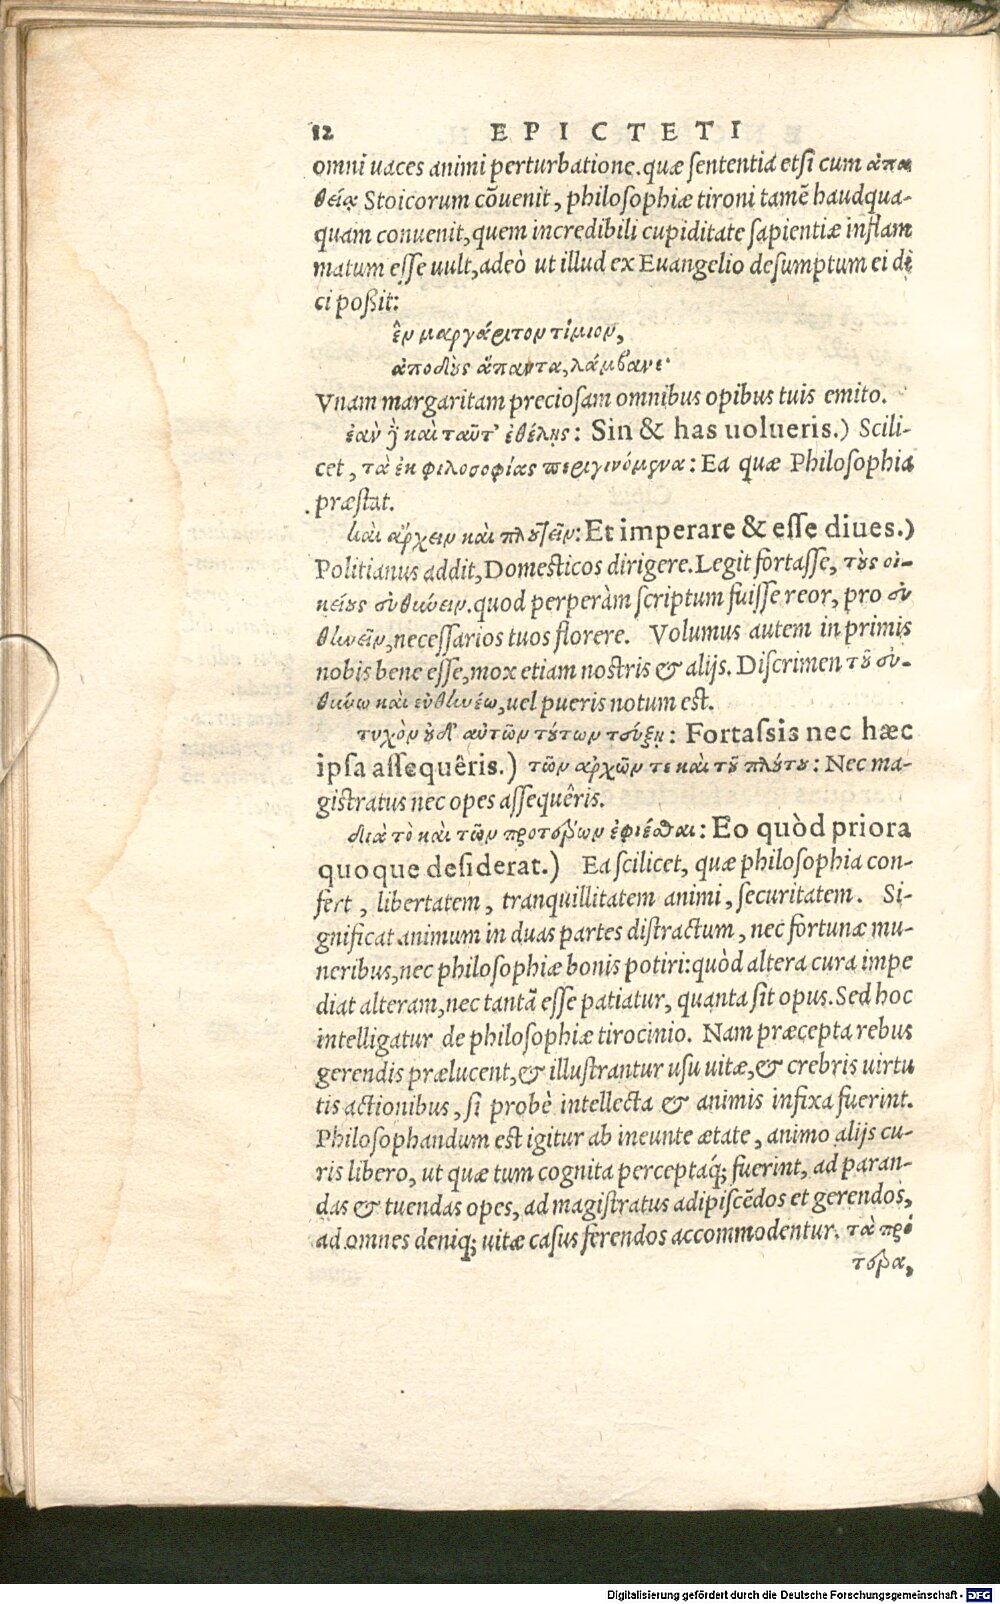 12 EPICTETI
omni uaces animi perturbatione. quæ sententia etsi cum ἀπα
θείᾳ Stoicorum cōuenit, philosophiæ tironi tamē haudqua-
quam conuenit, quem incredibili cupiditate sapientiæ inflam
matum esse uult, adeò ut illud ex Euangelio desumptum ei di
ci poßit:
ἓν μαργάριτον τίμιον,
ἀποδοὺς ἅπαντα, λάμβανε·
Vnam margaritam preciosam omnibus opibus tuis emito.
ἐὰν δὲ καὶ ταῦτ' ἐθέλῃς: Sin & has uolueris.) Scili-
cet, τὰ ἐκ φιλοσοφίας περιγινόμενα: Ea quæ Philosophia
præstat.
καὶ ἄρχειν καὶ πλουτεῖν: Et imperare & esse diues.)
Politianus addit, Domesticos dirigere. Legit fortasse, τοὺς οἰ-
κείους εὐθύνειν. quod perperàm scriptum fuisse reor, pro εὐ
θηνεῖν, necessarios tuos florere. Volumus autem in primis
nobis bene esse, mox etiam nostris & alijs. Discrimen τοῦ εὐ-
θύνω καὶ εὐθηνέω, uel pueris notum est.
τυχὸν οὐδ' αὐτῶν τούτων τεύξῃ: Fortassis nec hæc
ipsa assequêris.) τῶν ἀρχῶν τε καὶ τοῦ πλούτου: Nec ma-
gistratus nec opes assequêris.
διὰ τὸ καὶ τῶν προτέρων ἐφίεσθαι: Eo quòd priora
quoque desiderat.) Ea scilicet, quæ philosophia con-
fert, libertatem, tranquillitatem animi, securitatem. Si-
gnificat animum in duas partes distractum, nec fortunæ mu-
neribus, nec philosophiæ bonis potiri: quòd altera cura impe
diat alteram, nec tantā esse patiatur, quanta sit opus. Sed hoc
intelligatur de philosophiæ tirocinio. Nam præcepta rebus
gerendis prælucent, & illustrantur usu uitæ, & crebris uirtu
tis actionibus, si probè intellecta & animis infixa fuerint.
Philosophandum est igitur ab ineunte ætate, animo alijs cu-
ris libero, ut quæ tum cognita perceptaq́; fuerint, ad paran-
das & tuendas opes, ad magistratus adipiscēdos et gerendos,
ad omnes deniq; uitæ casus ferendos accommodentur. τὰ πρό
τερα,
Digitalisierung gefördert durch die Deutsche Forschungsgemeinschaft - DFG